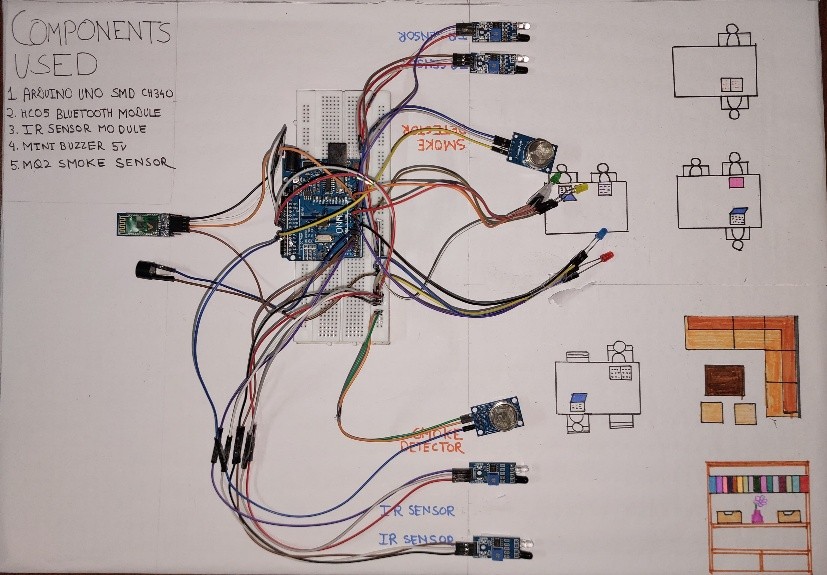 COMPONENTS
USED
1 ARDUINO UNO SMD CH340
2. HC05 BLUETOOTH MODULE
3. IR SENSOR MODULE
4. MINI BUZZER 5V
5. MQ2 SMOKE SENSOR
IR SENSOR
IR SENSOR
SMOKE
DETECTOR
UNO
SMOKE
DETECTOR
IR SENSOR
IR SENSOR